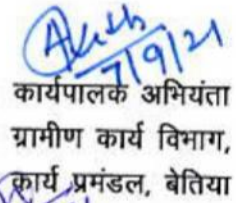 7/9/21
कार्यपालक अभियंता
ग्रामीण कार्य विभाग,
कार्य प्रमंडल, बेतिया